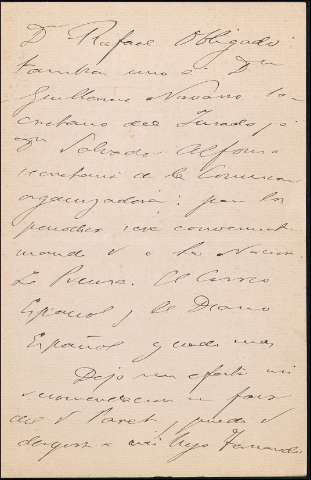 Dn Rafael Obligado
también uno a Dn
Guillermo Navarro
secretario del Jurado, y a
Salvador Alfonso
secretario de la Comision
organizadora; para los
periodicos será conveniente
mande V a La Nacion
La Prensa. El Correo
Español y el Diario
Español y nada mas
Dejo sin efecto mi
recomendacion en favor
del V Paret, puede V
dirigirse a mi hijo Fernando